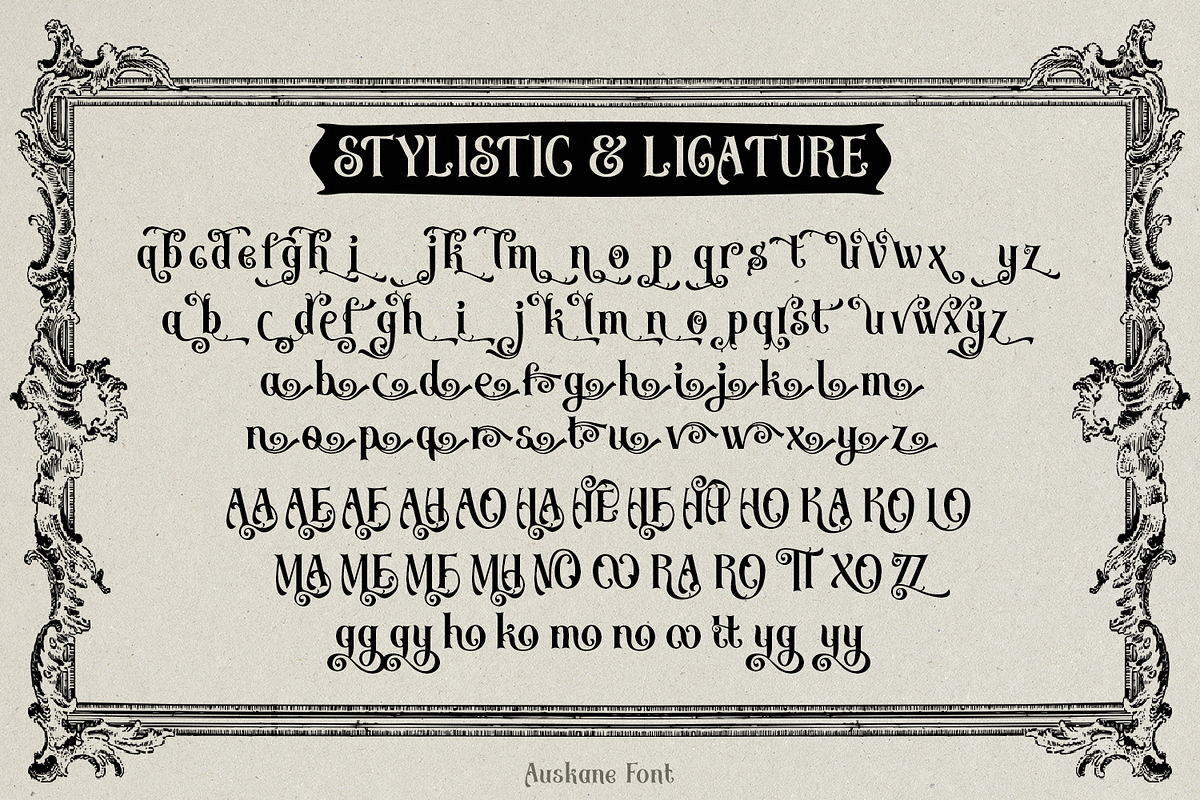 STYLISTIC & LIGATURE
abcdefgh i jk lm n o p qrs t uvwx yz
a b c defgh i jklm n o pqrst uvwxyz
a b c d e f g h i j k l m
n o p q r s t u v w x y z
AA AE AF AH AO HA HE HF HH HO KA KO LO
MA ME MF MH NO OO RA RO TT XO ZZ
gg gy ho ko mo no oo tt yg yy
Auskane Font